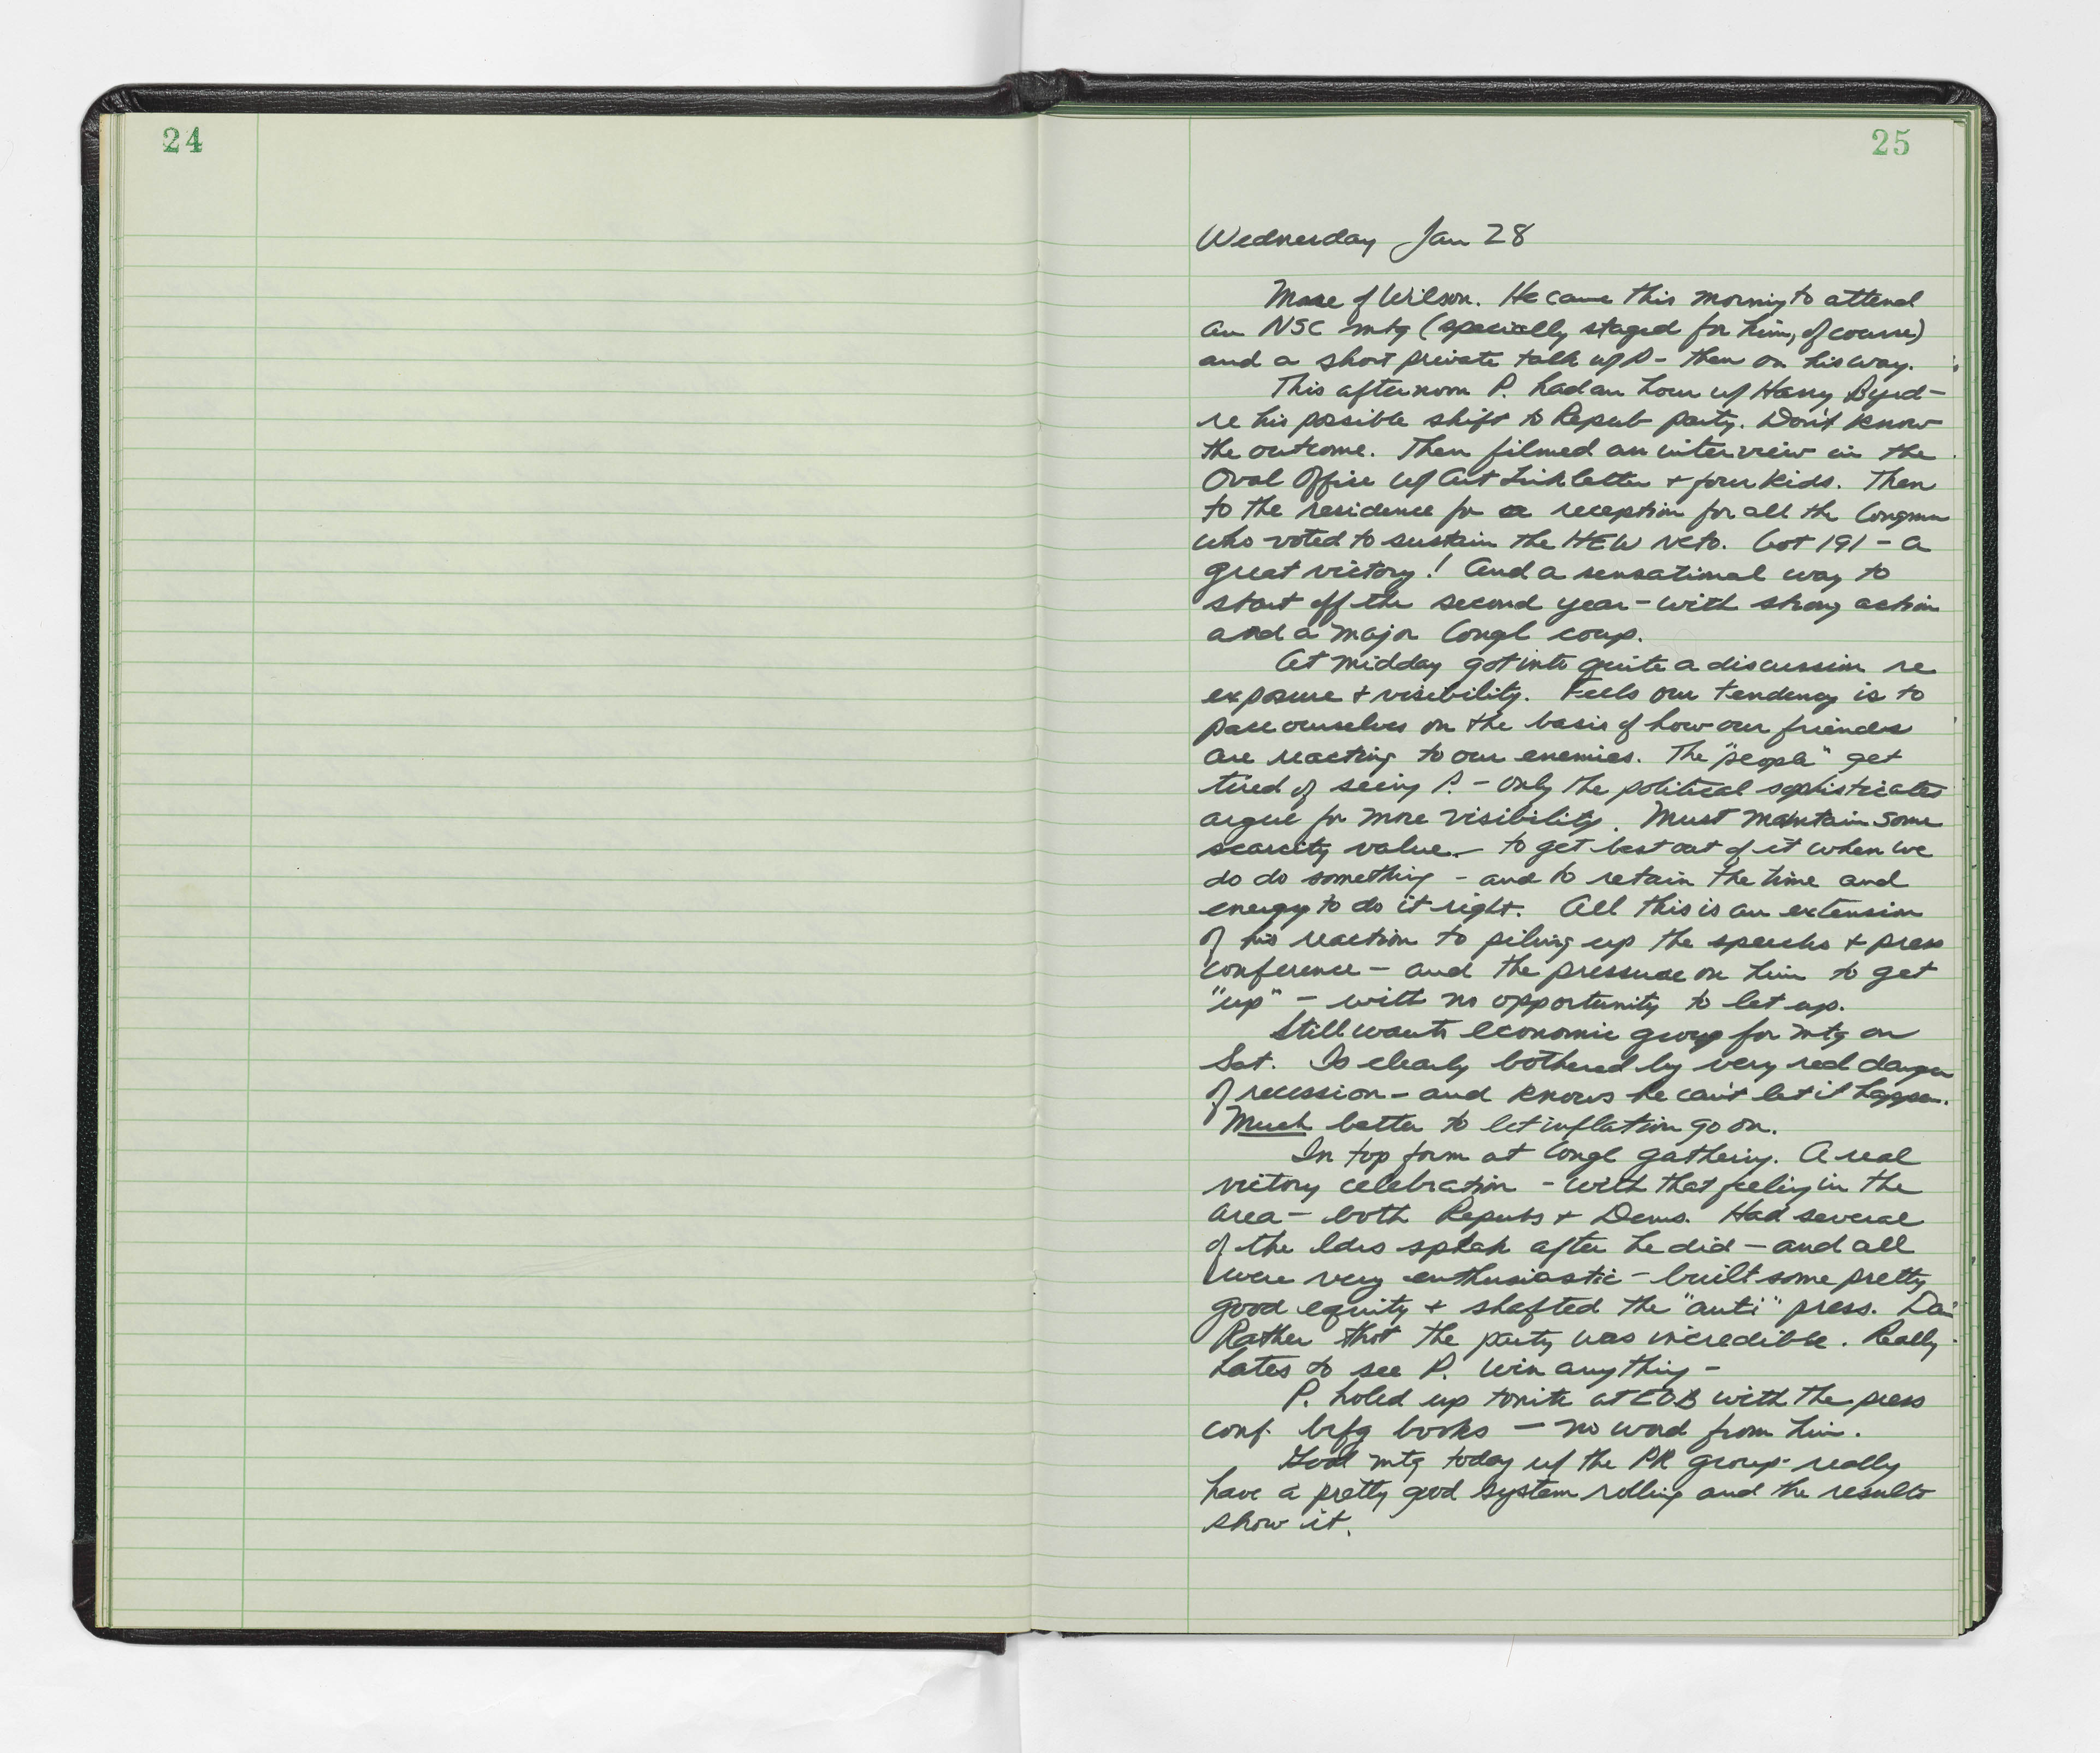 24
25
Wednesday Jan 28
More of Wilson. He came this morning to attend
an NSC mtg (specially staged for him, of course)
and a short private talk w/ P - then on his way.
This afternoon P. had an hour w/ Harry Byrd -
re his possible shift to Repub party. Don't know
the outcome. Then filmed an interview in the
Oval Office w/ Art Linkletter + four kids. Then
to the residence for a reception for all the Congmn
who voted to sustain the HEW veto. Got 191 - a
great victory! And a sensational way to
start off the second year - with strong action
and a major Congl coup.
At midday got into quite a discussion re
exposure + visibility. Feels our tendency is to
pace ourselves on the basis of how our friends
are reacting to our enemies. The "people" get
tired of seeing P. - only the political sophisticates
argue for more visibility. Must maintain some
scarcity value - to get best out of it when we
do do something - and to retain the time and
energy to do it right. All this is an extension
of his reaction to piling up the speechs + press
conference - and the pressure on him to get
"up" - with no opportunity to let up.
Still wants economic group for mtg on
Sat. Is clearly bothered by very real danger
of recession - and knows he can't let it happen.
Much better to let inflation go on.
In top form at Congl gathering. A real
victory celebration - with that feeling in the
area - both Repubs + Dems. Had several
of the ldrs speak after he did - and all
were very enthusiastic - built some pretty
good equity + shafted the "anti" press. Dan
Rather thot the party was incredible. Really
hates to see P. win anything -
P. holed up tonite at EOB with the press
conf. brfg books - no word from him.
Good mtg today w/ the PR group - really
have a pretty good system rolling and the results
show it.